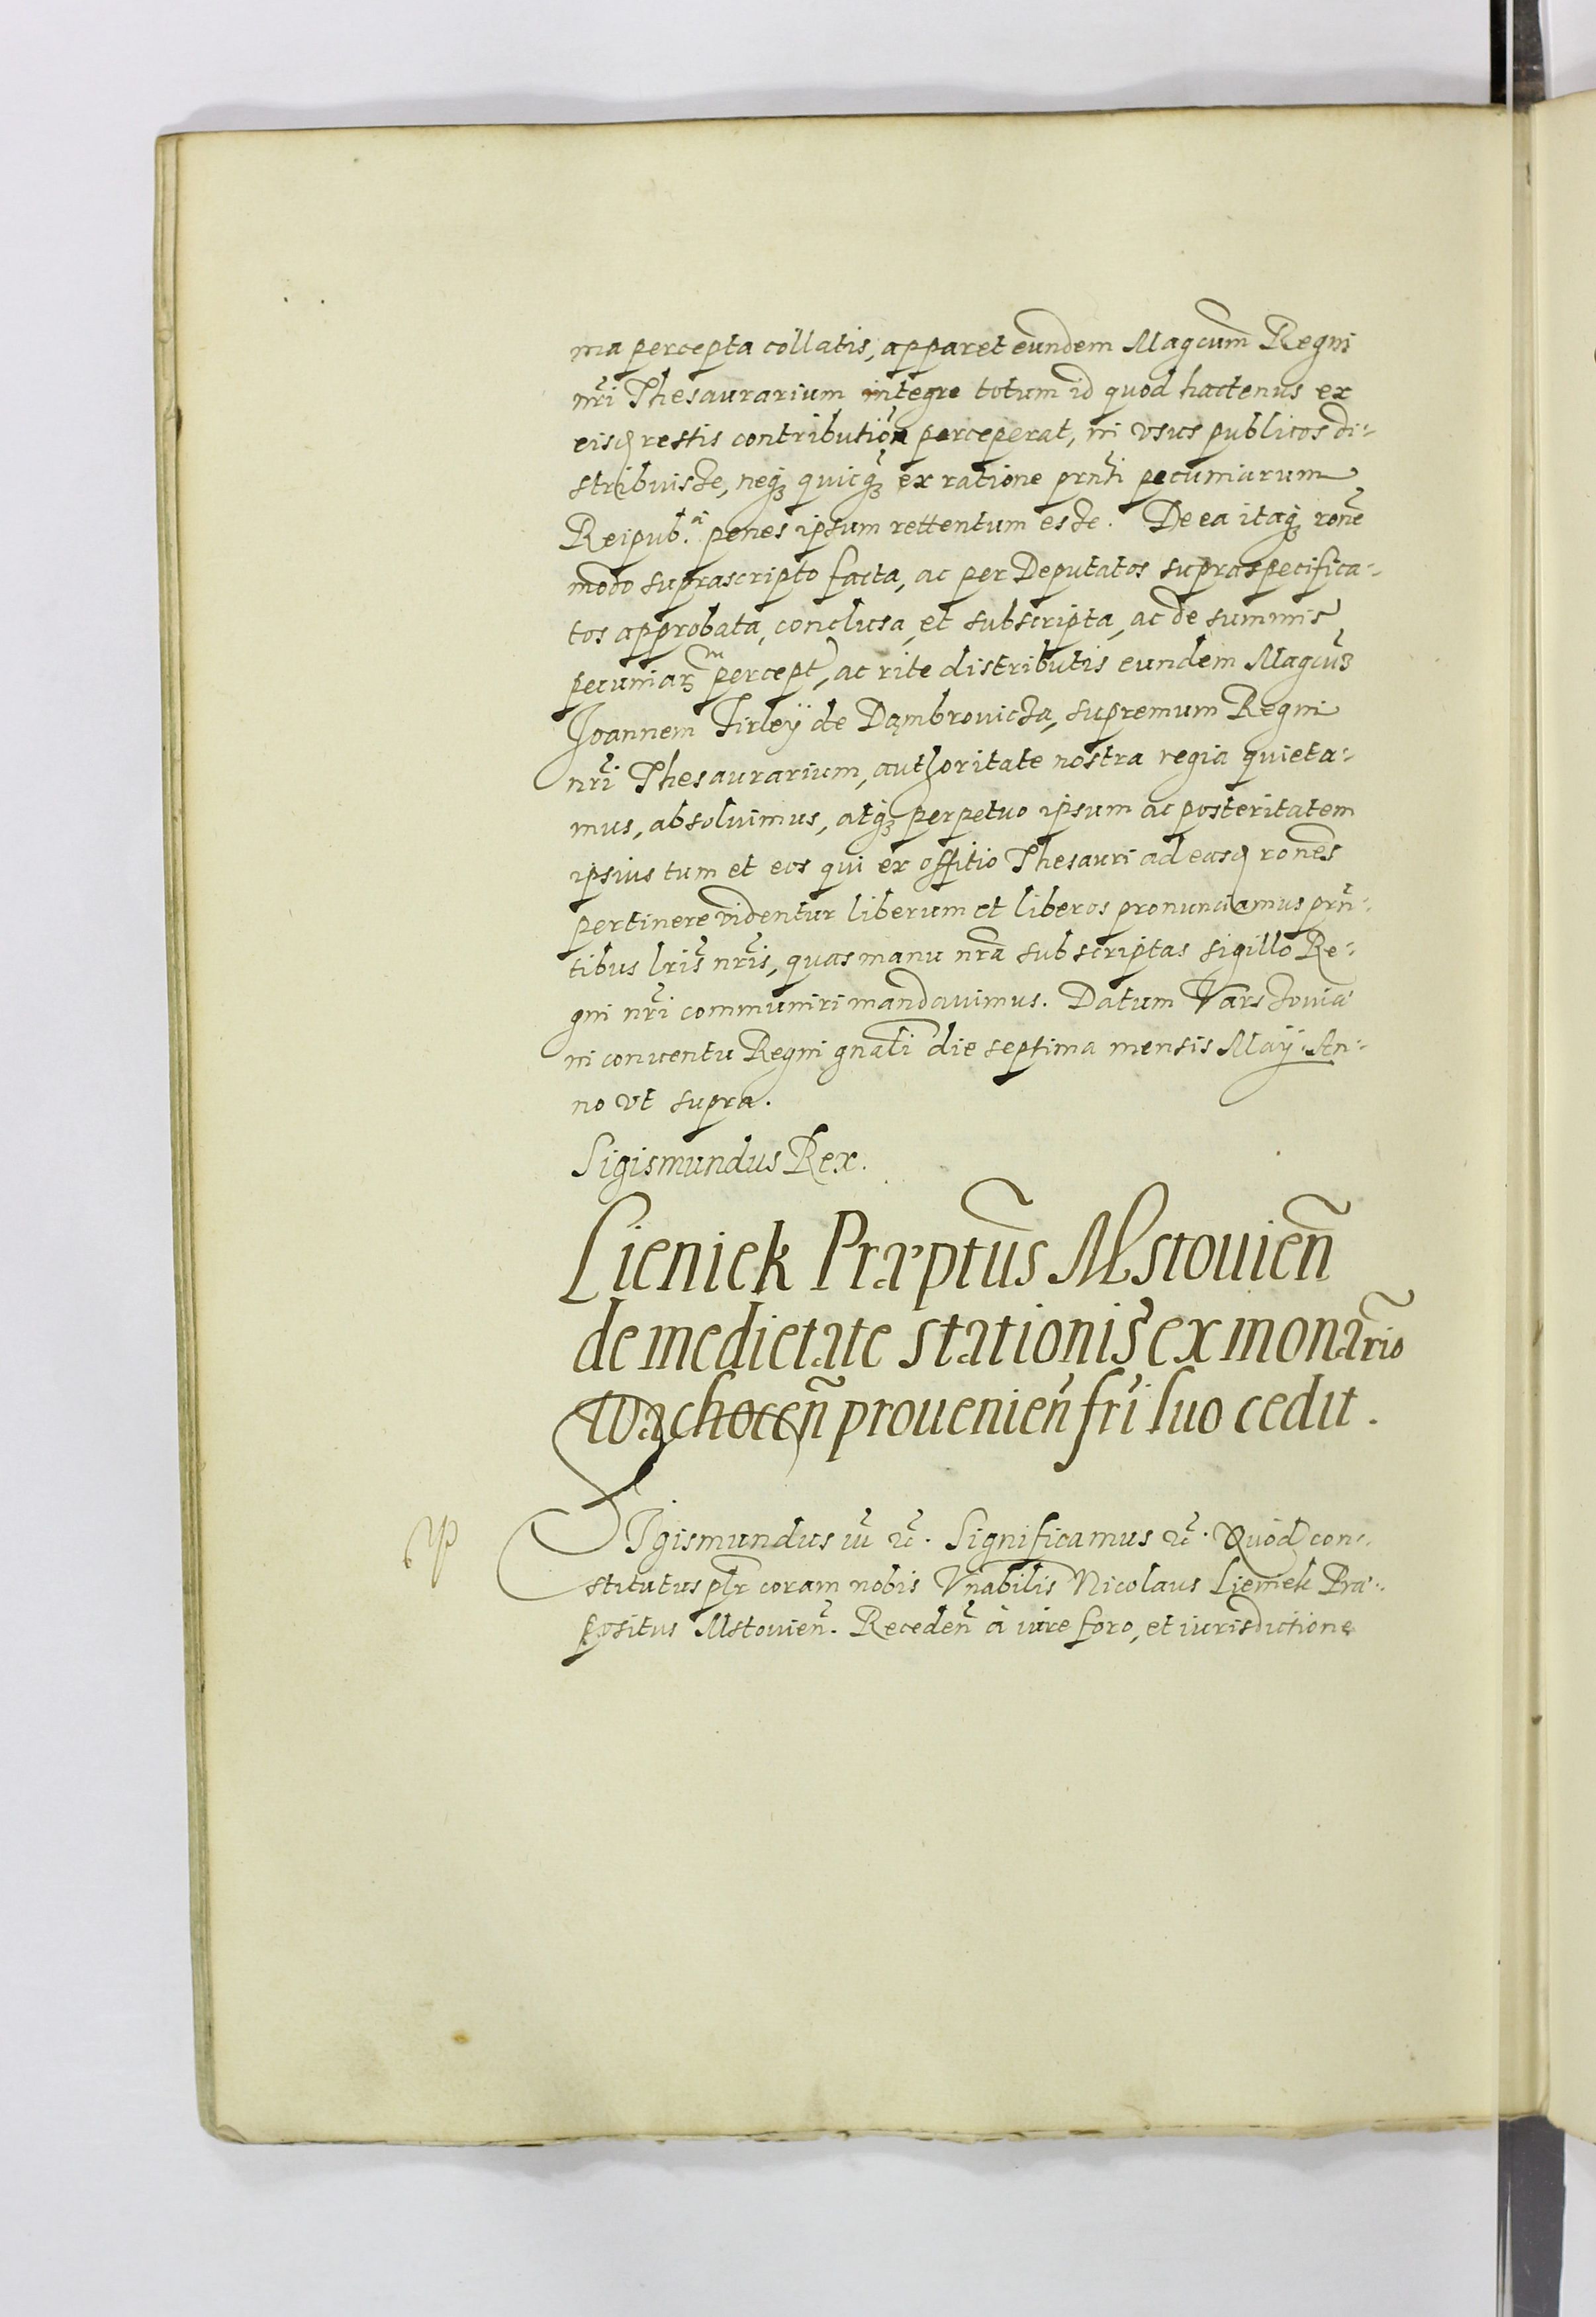 ma percepta collatis, apparet eundem Magcum̃ Regni
nr̃i Thesaurarium integre totum id quod hactenus ex
eisd restis contribution̄ perceperat, in vsus publicos di-
stribuisse, neqꝫ quicqꝫ ex ratione prn̄ti pecuniarum
Reipub.ᵃ penes ipsum rettentum esse. De ea itaqꝫ rone̅
modo suprascripto facta, ac per Deputatos supraspecifica-
tos approbata, conclusa, et subscripta, ac de summis
pecuniarꝫ percept, ac rite distributis eundem Magcuꝫ
Joannem Firleÿ de Dąmbrovicza, supremum Regni
nr̃i Thesaurarium, authoritate nostra regia quieta-
mus, absoluimus, atqꝫ perpetuo ipsum ac posteritatem
ipsius tum et eos qui ex offitio Thesauri ad easd rones̅
pertinere videntur liberum et liberos pronunciamus prn̄-
tibus lr̃is nr̃is, quas manu nr̃a subscriptas sigillo Re-
gni nr̃i communiri mandauimus. Datum Varssouiæ
in conuentu Regni gnal̃i die septima mensis Maÿ. An-
no vt supra.
Sigismundus Rex.
Lieniek Præptũs Mstouien̄
de medietate stationis ex monãrio
Wachocen̄ prouenien̄ fr̃i suo cedit.
SIgismundus iii ꝛc. Significamus ꝛc. Quod con-
stitutus pl̃r coram nobis Vnabilis Nicolaus Lieniek Præ-
positus Mstouien̄. Receden̄ à iure foro, et iurisdictione